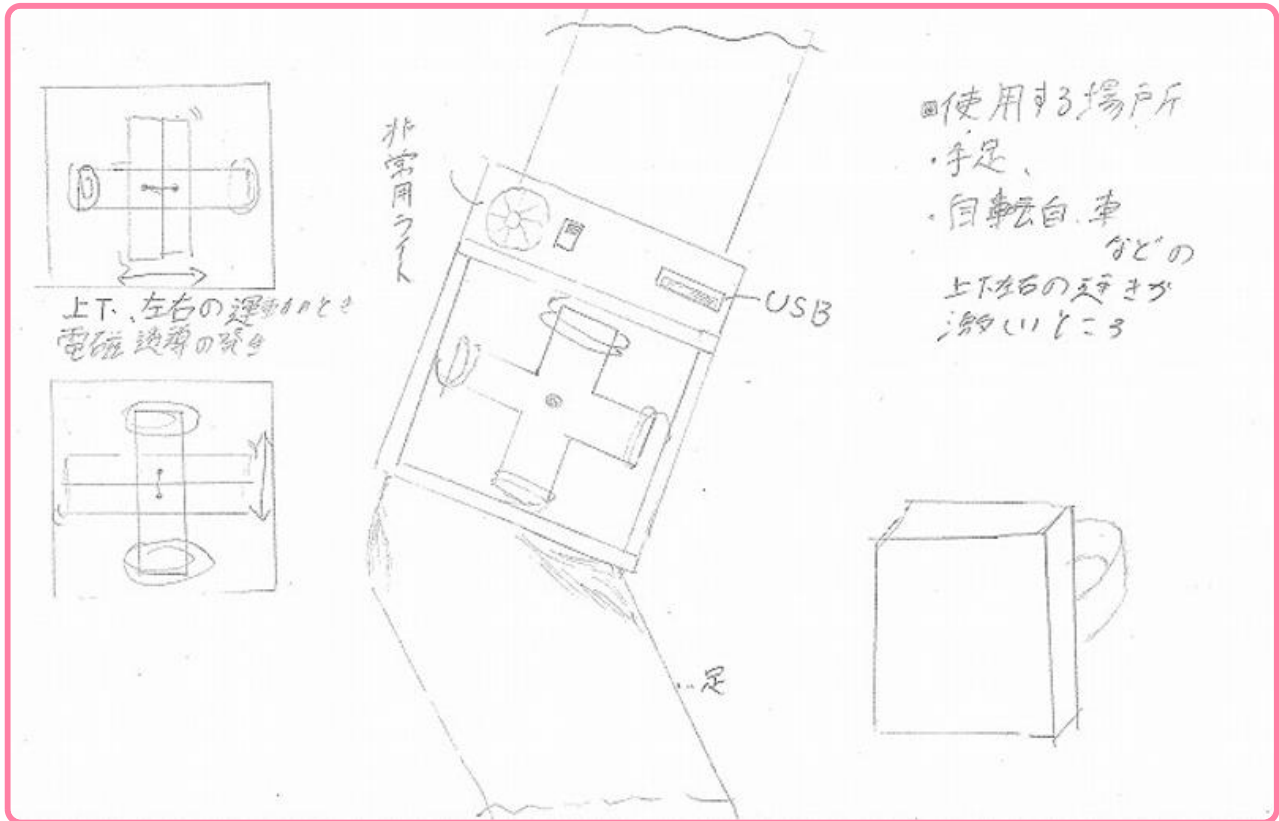 上下、左右の運動のとき
電磁誘導の発生
非常用ライト
USB
足
使用する場所
・手足、
・自転自.車
などの
上下左右の動きが
激しいところ